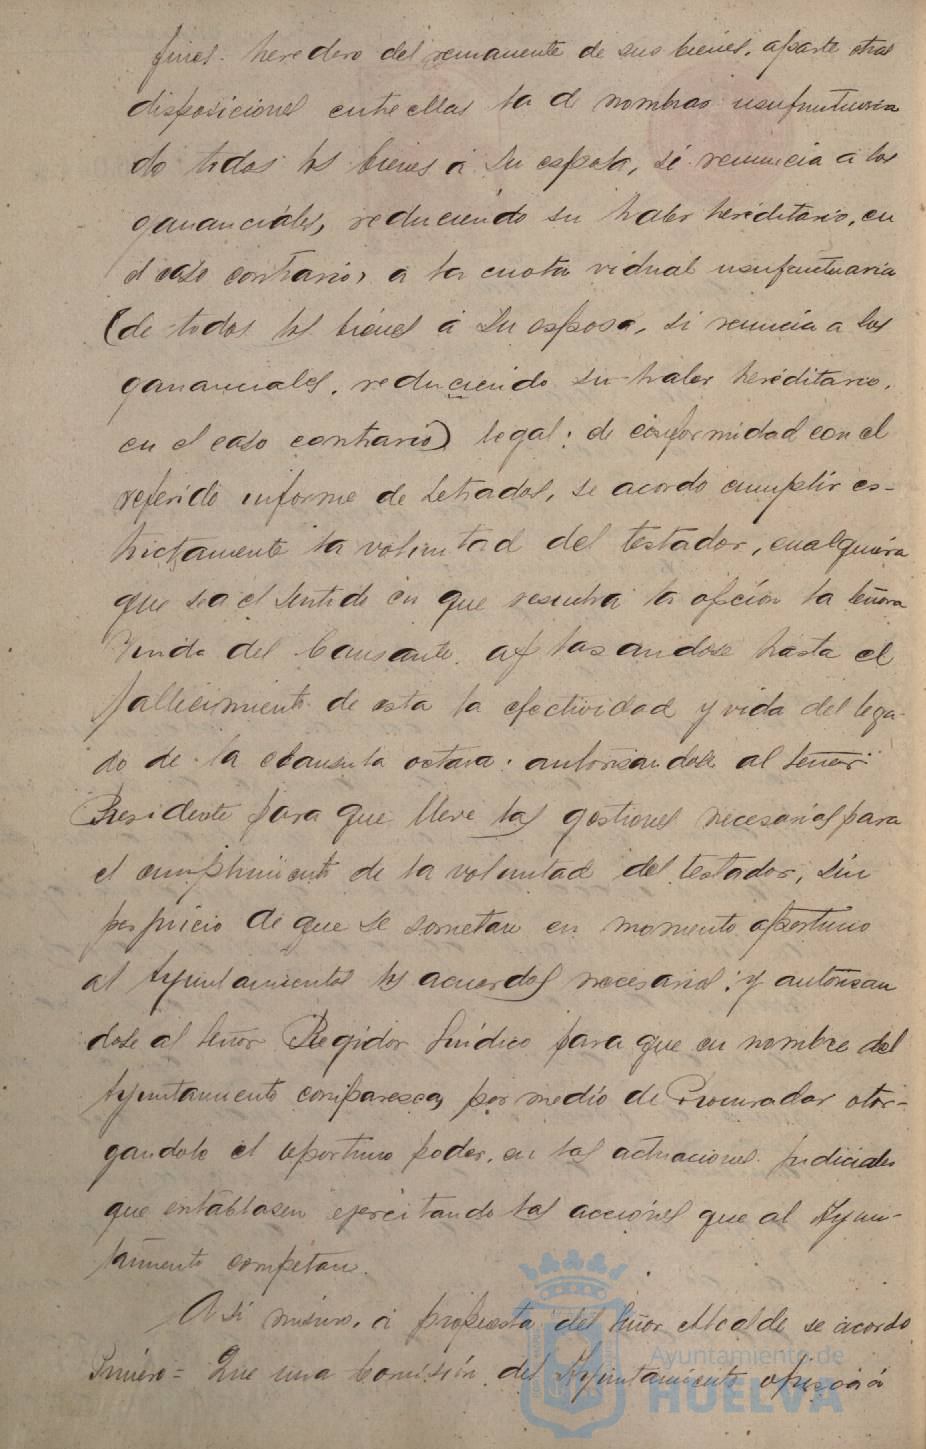 fines. heredero del remanente de sus bienes. aparte otras
disposiciones entre ellas la de nombrar usufrutuaria
do todos los bienes á su esposa, si renuncia a los
gananciales, reduciendo su haber hereditario, en
el caso contrario, a la cuota vidual usufrutuaria
(de todos los bienes á su esposa, si renuncia a los
gananciales, reduciendo su haber hereditario,
en el caso contrario) legal: de conformidad con el
referido informe de Letrados, se acordo cumplir es-
trictamente la voluntad del testador, cualquiera
que sea el sentido en que resuelva la opción la señora
Viuda del Causante. aplasandose hasta el
fallecimiento de esta la efectividad y vida del lega-
do de la clausula octava. autorisandose al señor
Presidente para que lleve las gestiones necesarias para
el cumplimiento de la voluntad del testador, sin
perjuicio de que se sometan en momento oportuno
al Ayuntamiento los acuerdos necesarios: y autorisan
dose al señor Regidor Sindico para que en nombre del
Ayuntamiento comparesca, por medio de Procurador otor-
gandole el oportuno poder. en las actuaciones judiciales
que entablasen ejercitando las acciones que al Ayun-
tamiento competan.
Asi mismo, á propuesta del señor Alcalde se acordo
Que una Comisión del Ayuntamiento
Ayuntamiento de
HUELVA